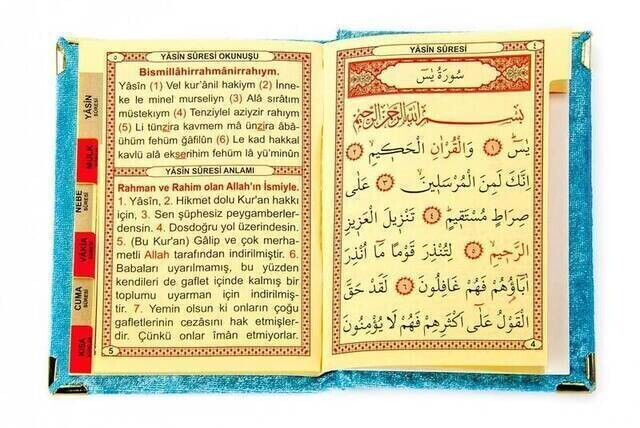 ٤
YÂSİN SÛRESİ
سُورَةُ يٰسٓ
بِسْمِ اللّٰهِ الرَّحْمٰنِ الرَّحٖيمِ
يٰسٓ ﴿١﴾ وَالْقُرْاٰنِ الْحَكٖيمِ ﴿٢﴾
اِنَّكَ لَمِنَ الْمُرْسَلٖينَ ﴿٣﴾ عَلٰى
صِرَاطٍ مُسْتَقٖيمٍ ﴿٤﴾ تَنْزٖيلَ الْعَزٖيزِ
الرَّحٖيمِ ﴿٥﴾ لِتُنْذِرَ قَوْمًا مَٓا اُنْذِرَ
اٰبَٓاؤُ۬هُمْ فَهُمْ غَافِلُونَ ﴿٦﴾ لَقَدْ حَقَّ
الْقَوْلُ عَلٰٓى اَكْثَرِهِمْ فَهُمْ لَا يُؤْمِنُونَ
4
٥
YÂSİN SÛRESİ OKUNUŞU
Bismillâhirrahmânirrahıym.
Yâsîn (1) Vel kur'ânil hakiym (2) İnne-
ke le minel murseliyn (3) Alâ sırâtım
müstekıym (4) Tenziylel aziyzir rahıym
(5) Li tünzira kavmem mâ ünzira âbâ-
ühüm fehüm ğâfilûn (6) Le kad hakkal
kavlü alâ ekserihim fehüm lâ yü'minûn
YÂSİN SÛRESİ ANLAMI
Rahman ve Rahim olan Allah'ın İsmiyle.
1. Yâsîn, 2. Hikmet dolu Kur'an hakkı
için, 3. Sen şüphesiz peygamberler-
densin. 4. Dosdoğru yol üzerindesin.
5. (Bu Kur'an) Gâlip ve çok merha-
metli Allah tarafından indirilmiştir. 6.
Babaları uyarılmamış, bu yüzden
kendileri de gaflet içinde kalmış bir
toplumu uyarman için indirilmiş-
tir. 7. Yemin olsun ki onların çoğu
gafletlerinin cezasını hak etmişler-
dir. Çünkü onlar îmân etmiyorlar.
5
YÂSİN
SÛRESİ
MÜLK
NEBE
SÛRESİ
VÂKIA
CUMA
SÛRESİ
KISA